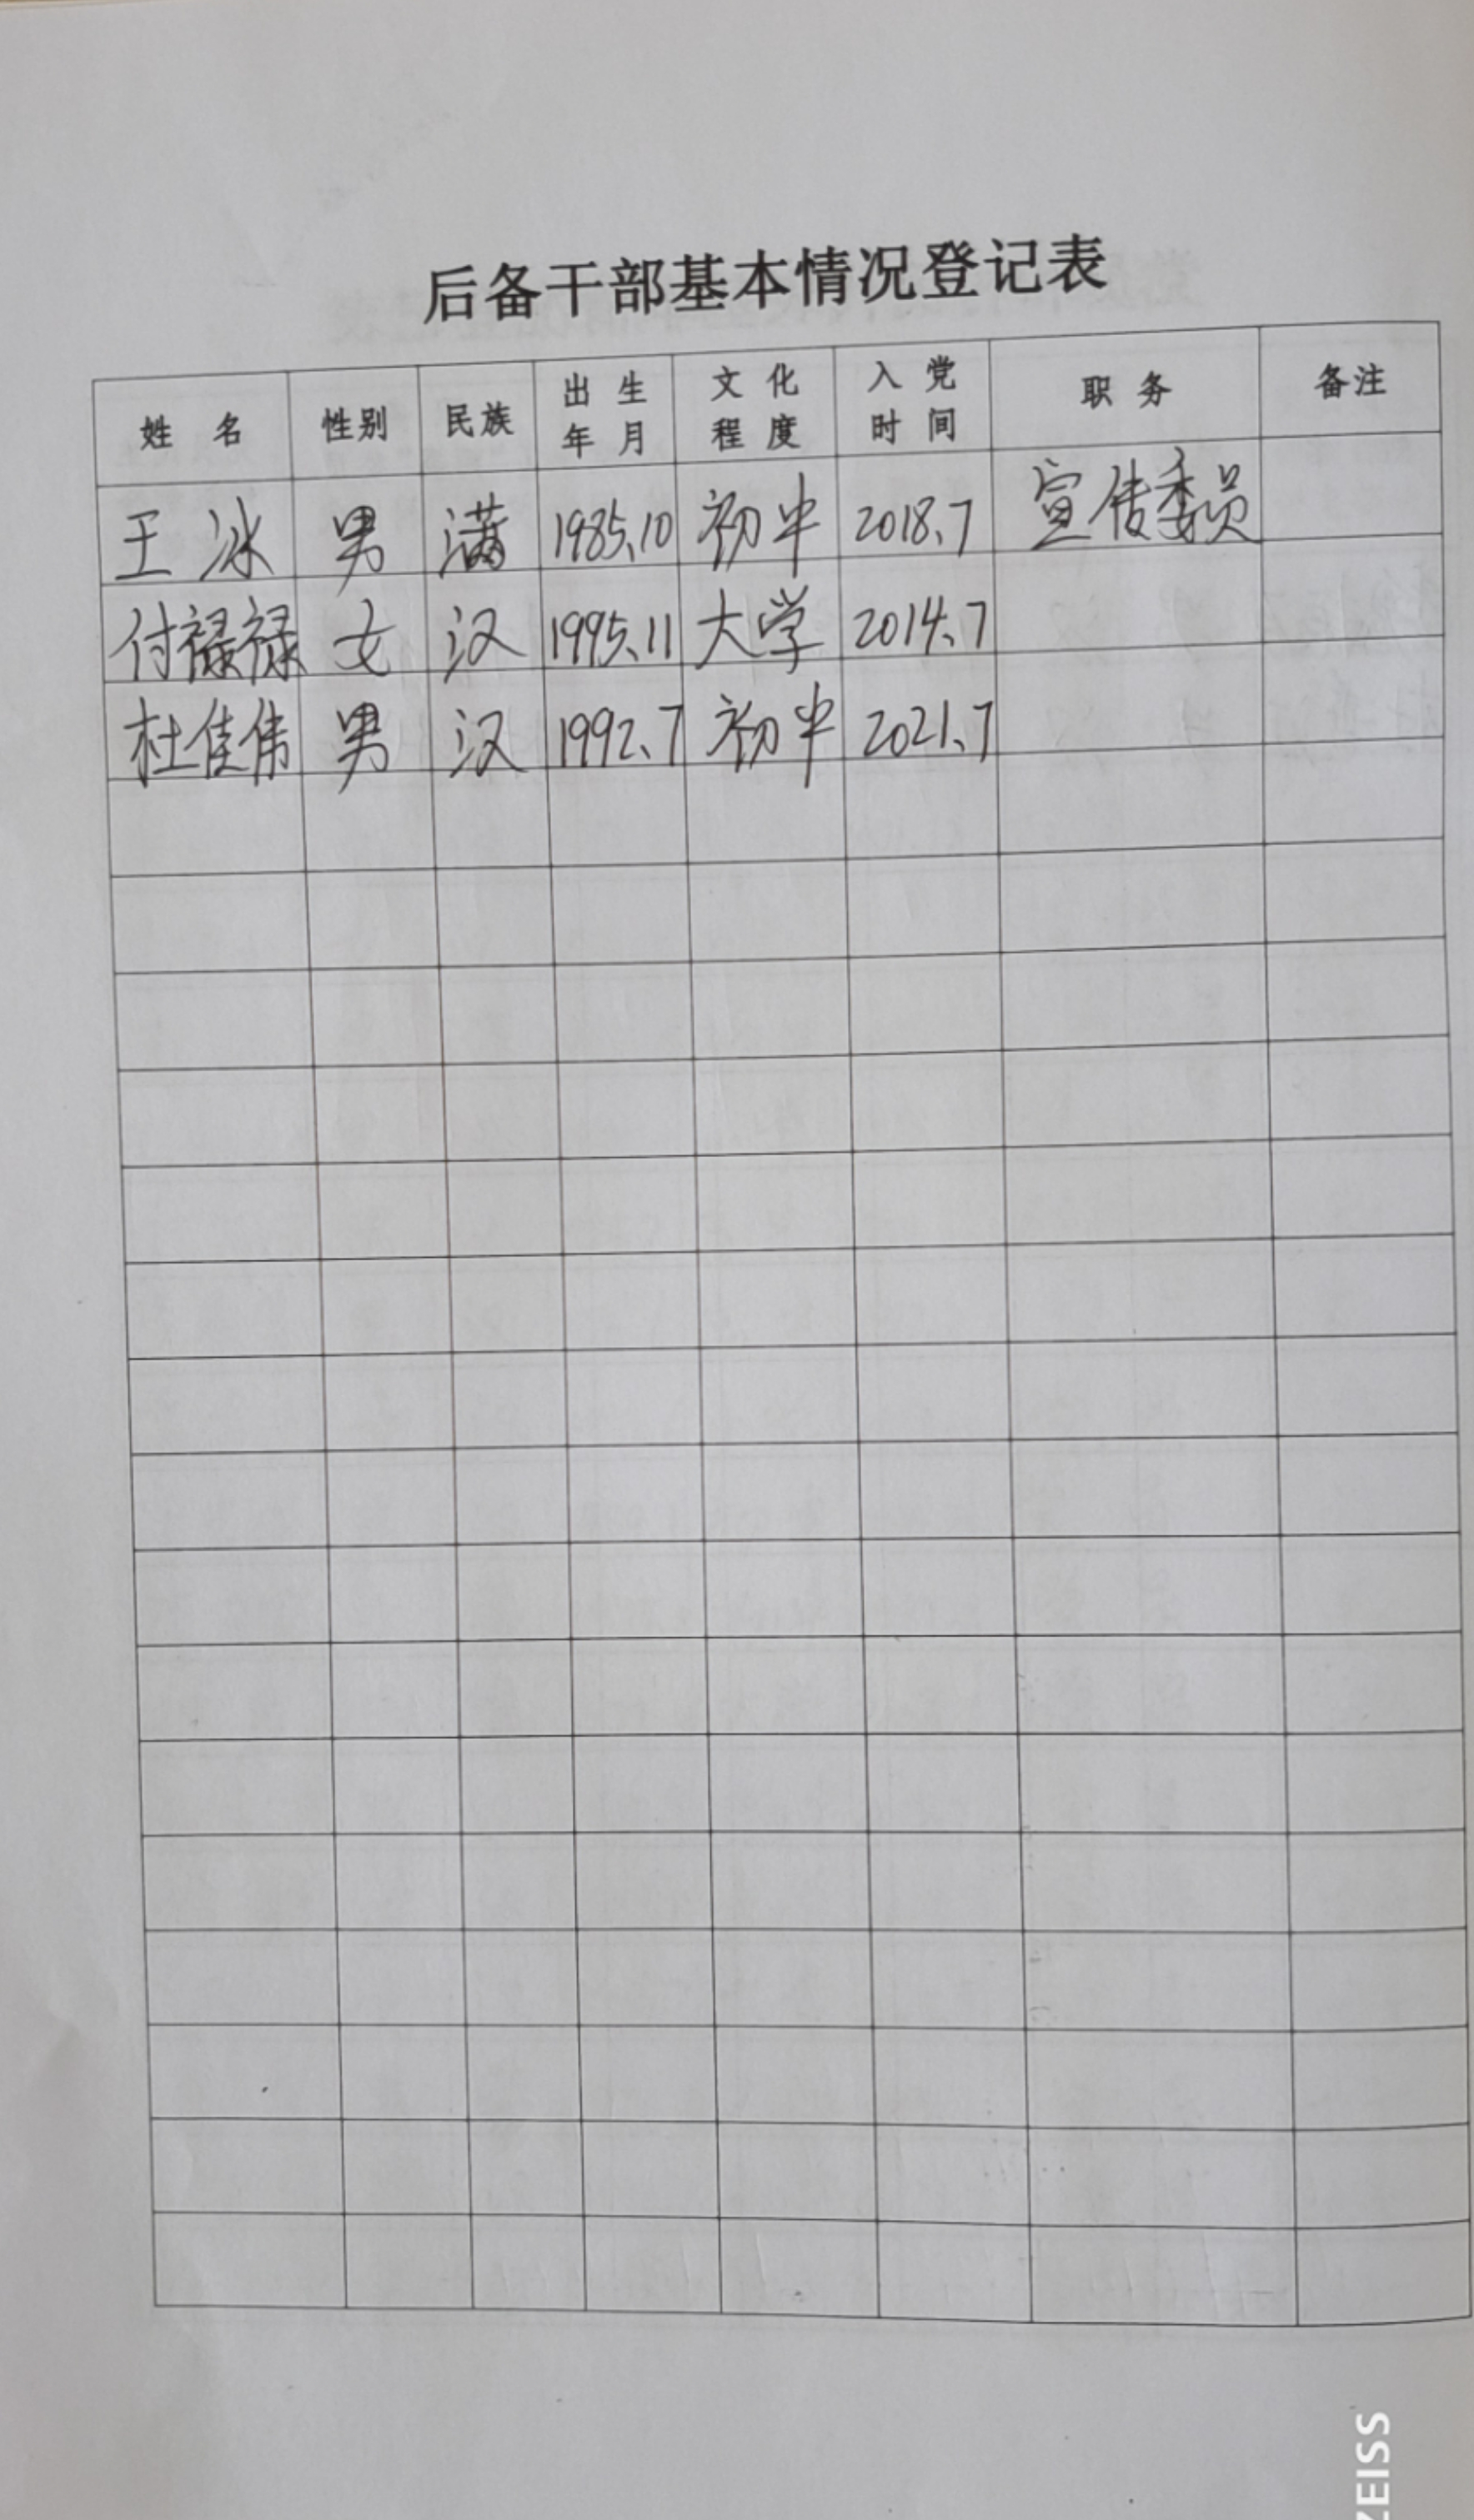 后备干部基本情况登记表
姓 名 性别 民族 出生年月 文化程度 入党时间 职务 备注
王冰 男 满 1985.10 初中 2018.7 宣传委员
付禄禄 女 汉 1995.11 大学 2014.7
杜佳伟 男 汉 1992.7 初中 2021.7
ZEISS